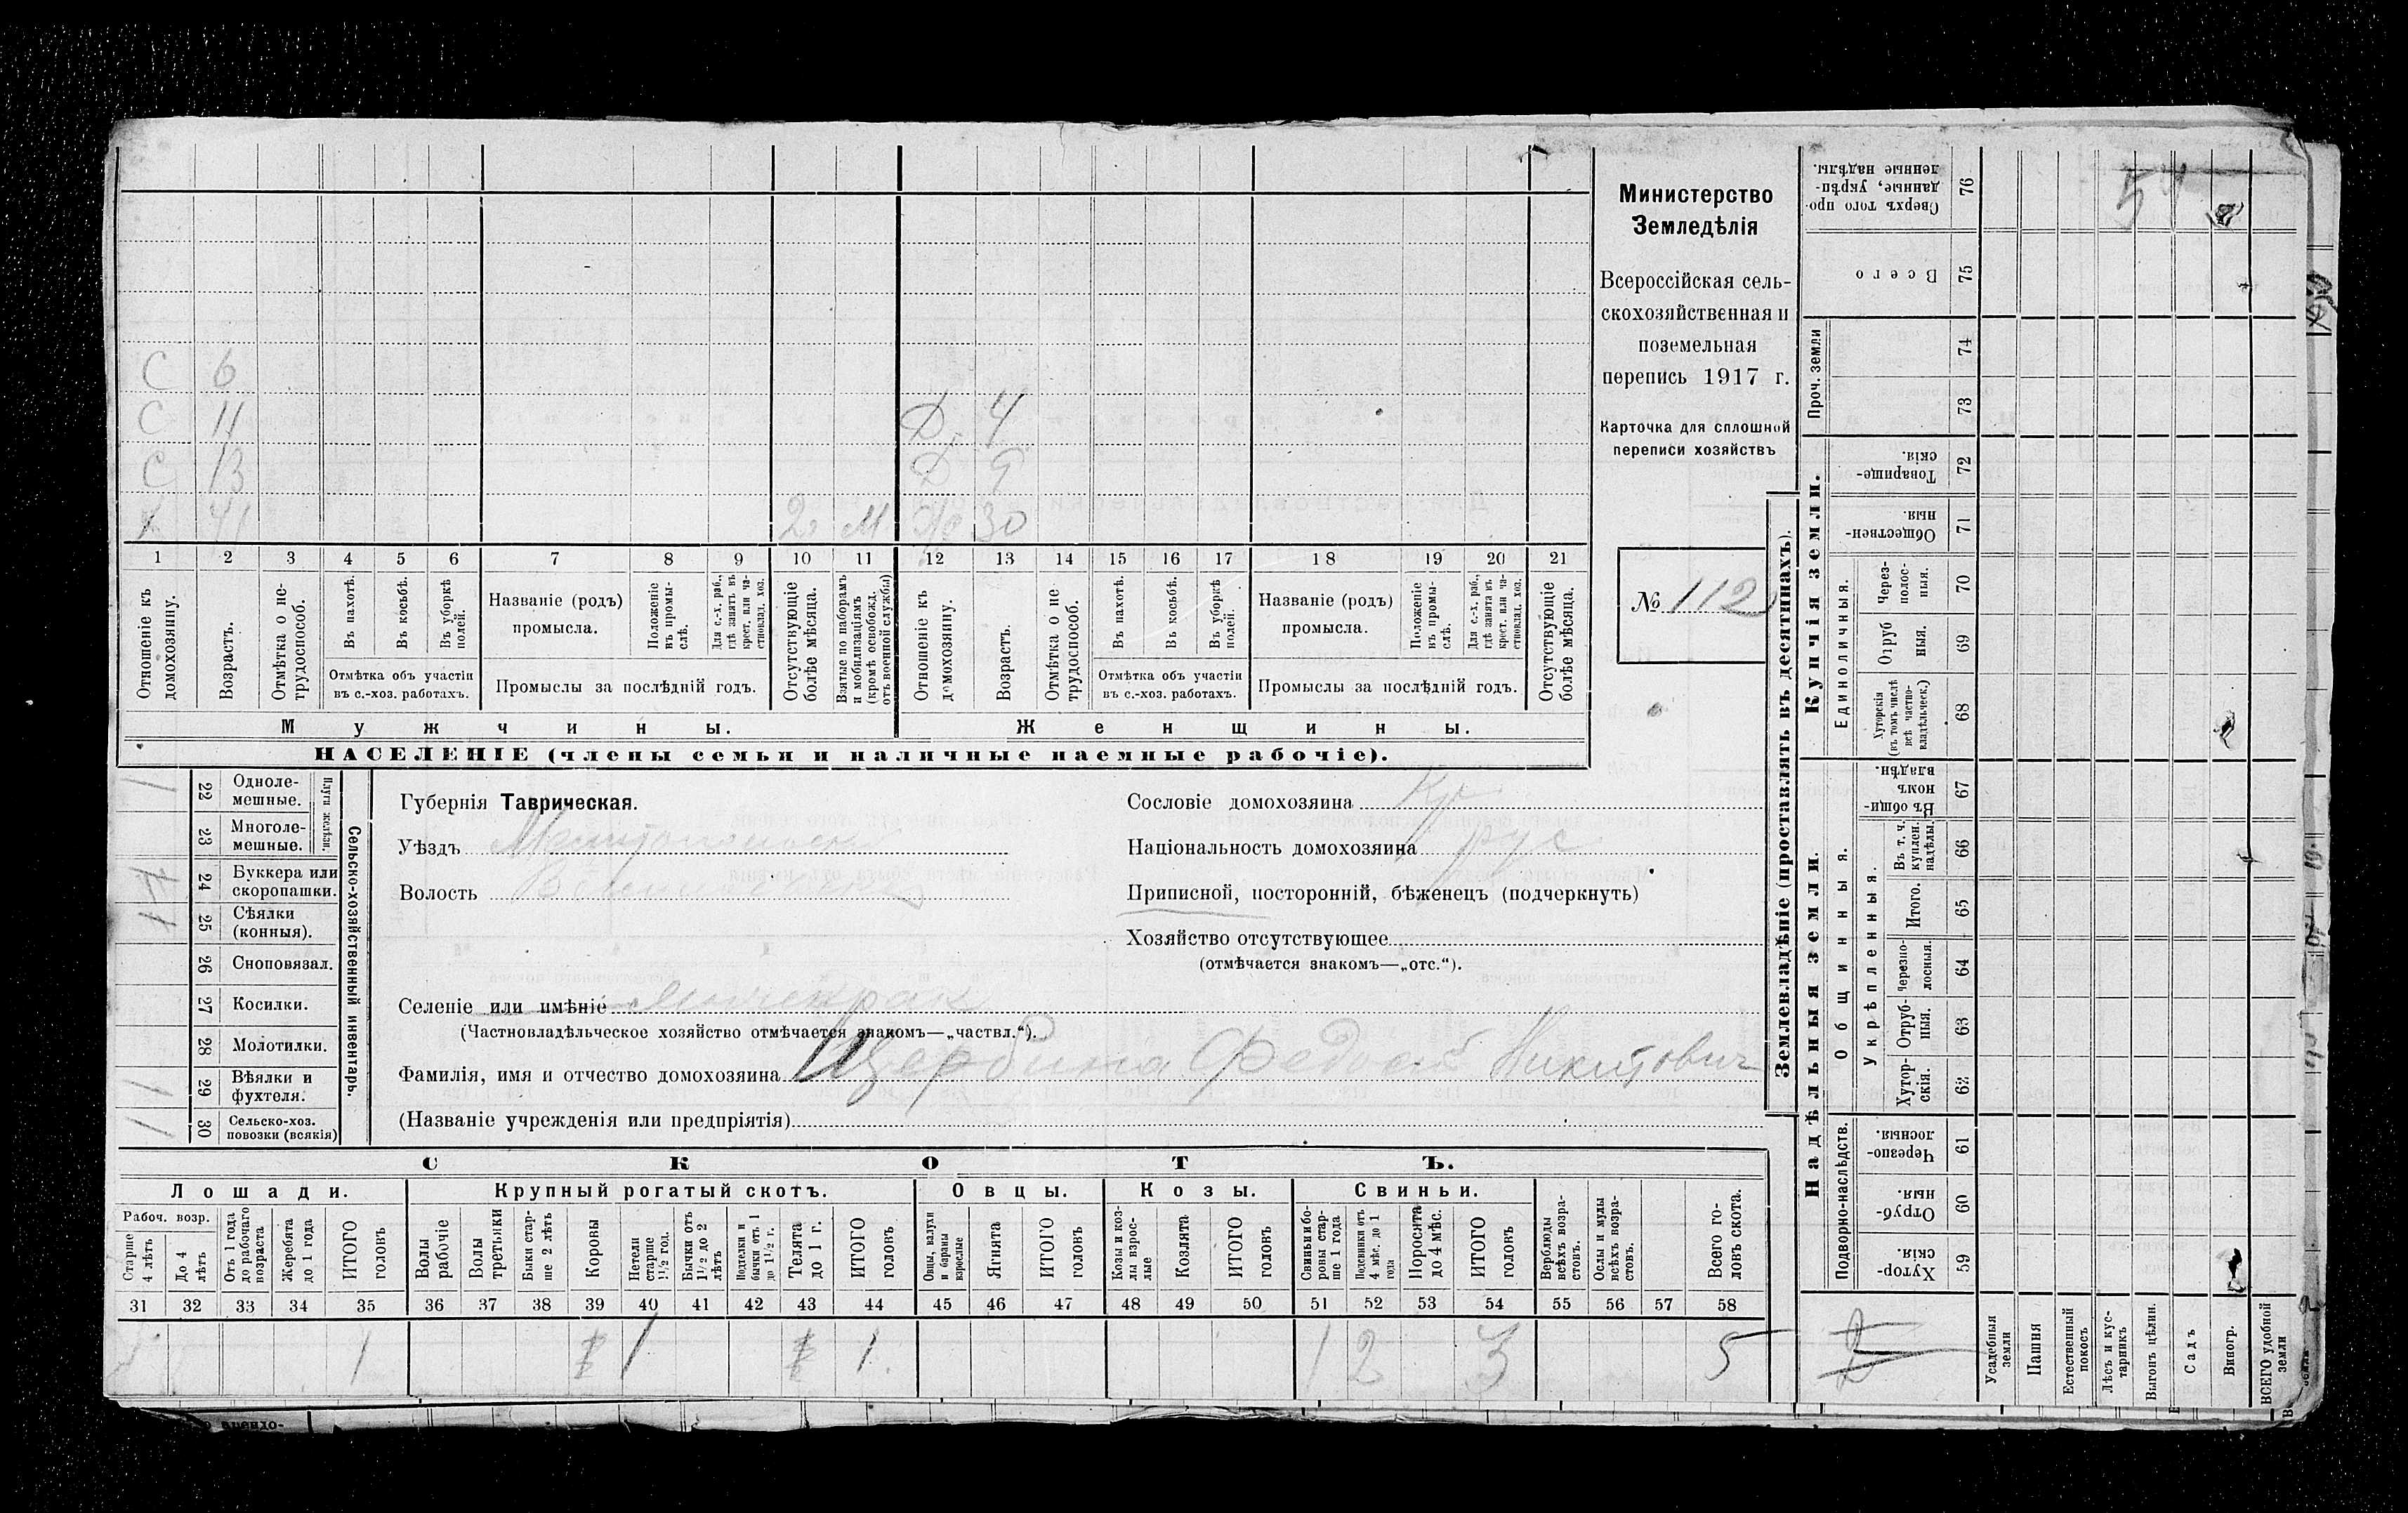 Министерство
Земледѣлія
Всероссійская сель-
скохозяйственная и
поземельная
перепись 1917 г.
Карточка для сплошной
переписи хозяйствъ
№ 112
С 6
С 11
Д 4
С 13
Д 9
Х 41 2г М Ж 30
1 2 3 4 5 6 7 8 9 10 11 12 13 14 15 16 17 18 19 20 21
Отношеніе къ домохозяину.
Возрастъ.
Отмѣтка о не-трудоспособ.
Въ пахотѣ.
Въ косьбѣ.
Въ уборкѣ полей.
Отмѣтка объ участіи
въ с.-хоз. работахъ.
Названіе (родъ)
промысла.
Положеніе въ промы-слѣ.
Для с.-х. раб., гдѣ занятъ въ крест. или ча-стновлад. хоз.
Промыслы за послѣдній годъ.
Отсутствующіе болѣе мѣсяца.
Взятые по наборамъ и мобилизаціямъ (кромѣ освобожд. отъ военной службы)
Отношеніе къ домохозяину.
Возрастъ.
Отмѣтка о не трудоспособ.
Въ пахотѣ.
Въ косьбѣ.
Въ уборкѣ полей.
Отмѣтка объ участіи
въ с.-хоз. работахъ.
Названіе (родъ)
промысла.
Положеніе въ промы-слѣ.
Для с.-х. раб., гдѣ занята въ крест. или ча-стновлад. хоз.
Промыслы за послѣдній годъ.
Отсутствующіе болѣе мѣсяца.
Мужчины.
Женщины.
НАСЕЛЕНІЕ (члены семьи и наличные наемные рабочіе).
22 Одноле-мешные. 1
23 Многоле-мешные.
Плуги желѣзн.
24 Буккера или скоропашки.
25 Сѣялки (конныя).
26 Сноповязал.
27 Косилки.
28 Молотилки.
29 Вѣялки и фухтеля.
30 Сельско-хоз. повозки (всякія)
Сельско-хозяйственный инвентарь.
Губернія Таврическая.
Уѣздъ Мелитопольск
Волость
Сословіе домохозяина Кр.
Національность домохозяина рус
Приписной, посторонній, бѣженецъ (подчеркнуть)
Хозяйство отсутствующее
(отмѣчается знакомъ—„отс.“).
Селеніе или имѣніе
(Частновладѣльческое хозяйство отмѣчается знакомъ—„частвл.“).
Фамилія, имя и отчество домохозяина Щербина Федосій Никитович
(Названіе учрежденія или предпріятія)
СКОТЪ.
Лошади.
Крупный рогатый скотъ.
Овцы.
Козы.
Свиньи.
Рабоч. возр.
Старше 4 лѣтъ
До 4 лѣтъ
Отъ 1 года до рабочаго возраста
Жеребята до 1 года
ИТОГО головъ
Волы рабочіе
Волы третьяки
Быки стар-ше 2 лѣтъ
Коровы
Нетели старше 1½ год.
Бычки отъ 1½ до 2 лѣтъ
Подтелки и бычки отъ 1 до 1½ г.
Телята до 1 г.
ИТОГО головъ
Овцы, валухи и бараны взрослые
Ягнята
ИТОГО головъ
Козы и коз-лы взрос-лые
Козлята
ИТОГО головъ
Свиньи и бо-ровы стар-ше 1 года
Подсвинки отъ 4 мѣс. до 1 года
Поросята до 4 мѣс.
ИТОГО головъ
Верблюды всѣхъ возра-стовъ.
Ослы и мулы всѣхъ возра-стовъ.
Всего го-ловъ скота.
31 32 33 34 35 36 37 38 39 40 41 42 43 44 45 46 47 48 49 50 51 52 53 54 55 56 57 58
1 1 1 1 1 2 3 5
Землевладѣніе (проставлять въ десятинахъ).
Купчія земли.
Надѣльныя земли.
Сверхъ того про-данные, укрѣп-ленные надѣлы. 76
Всего 75
Проч. земли 74 73
Товарище-скія. 72
Обществен-ныя. 71
Единоличныя.
Через-полос-ныя. 70
Отруб ныя. 69
Хуторскія (въ томъ числѣ всѣ частно-владѣльческ.) 68
Общинныя.
Въ общи-номъ владѣн. 67
Укрѣпленныя.
Въ т. ч. куплен. надѣлы. 66
Итого. 65
Черезпо-лосныя. 64
Отруб-ныя. 63
Хутор-скія. 62
Подворно-наслѣдств.
Черезпо-лосныя. 61
Отруб-ныя. 60
Хутор-скія. 59
Усадебныя земли
Пашня
Естественный покосъ
Лѣсъ и кус-тарникъ
Выгонъ цѣлин.
Садъ
Виногр.
ВСЕГО удобной земли